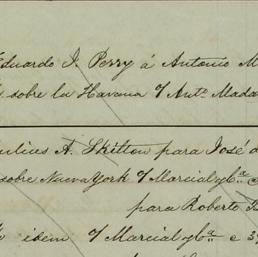 Eduardo J. Perry á Antonio M
sobre la Havana 7 Anto. Mada
A. Skilton para José d
sobre Nueva York 7 Marcial y
para Roberto
idem 7 Marcial y ca. e 3